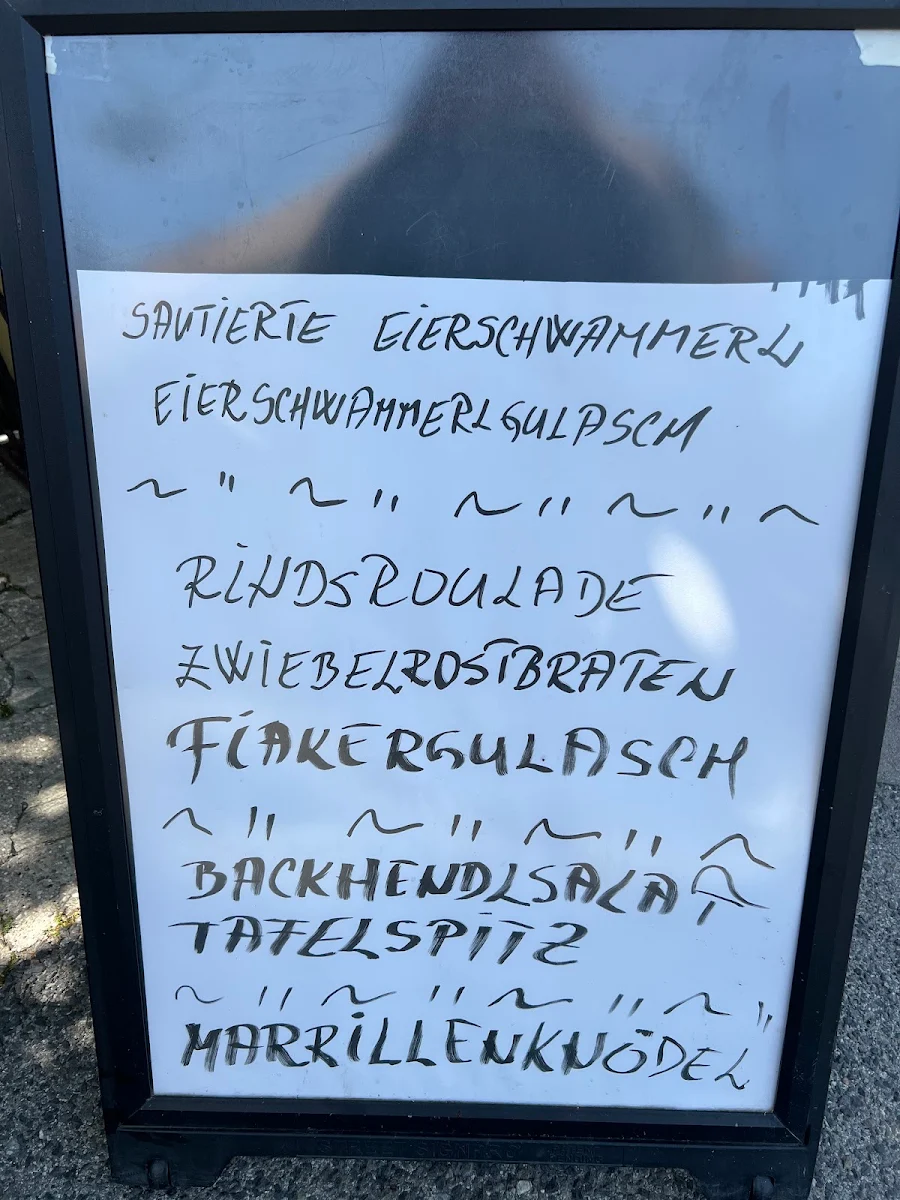 SAUTiERTE EiERSCHWAMMERL
EiERSCHWAMMERLGULASCH
~ " ~ " ~ " ~ " ~
RiNDSROULADE
ZWiEBELROSTBRATEN
FiAKERGULASCH
~ " ~ " ~ " ~
BACKHENDLSALAT
TAFELSPiTZ
~ " ~ " ~ " ~ "
MARRiLLENKNÖDEL